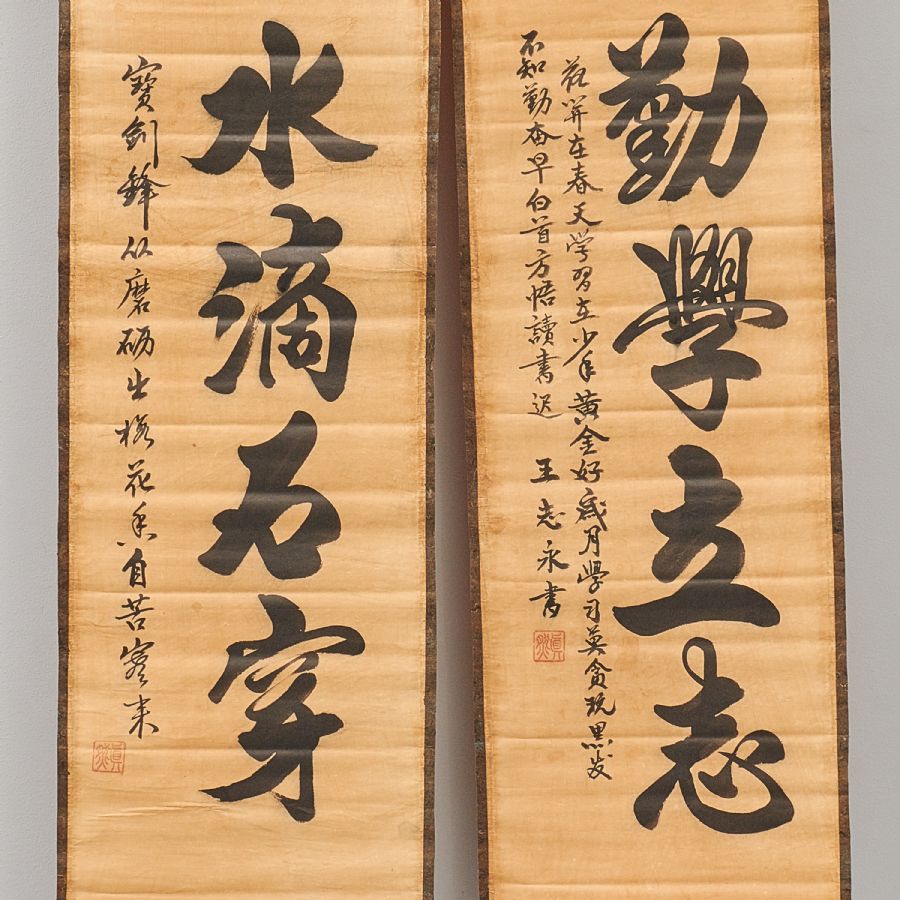 勤學立志
花开在春天学習在少年黄金好歲月學习莫贪玩黑发
不知勤奋早白首方悟讀書迟
王志永書
水滴石穿
寶剑鋒从磨砺出梅花香自苦寒来